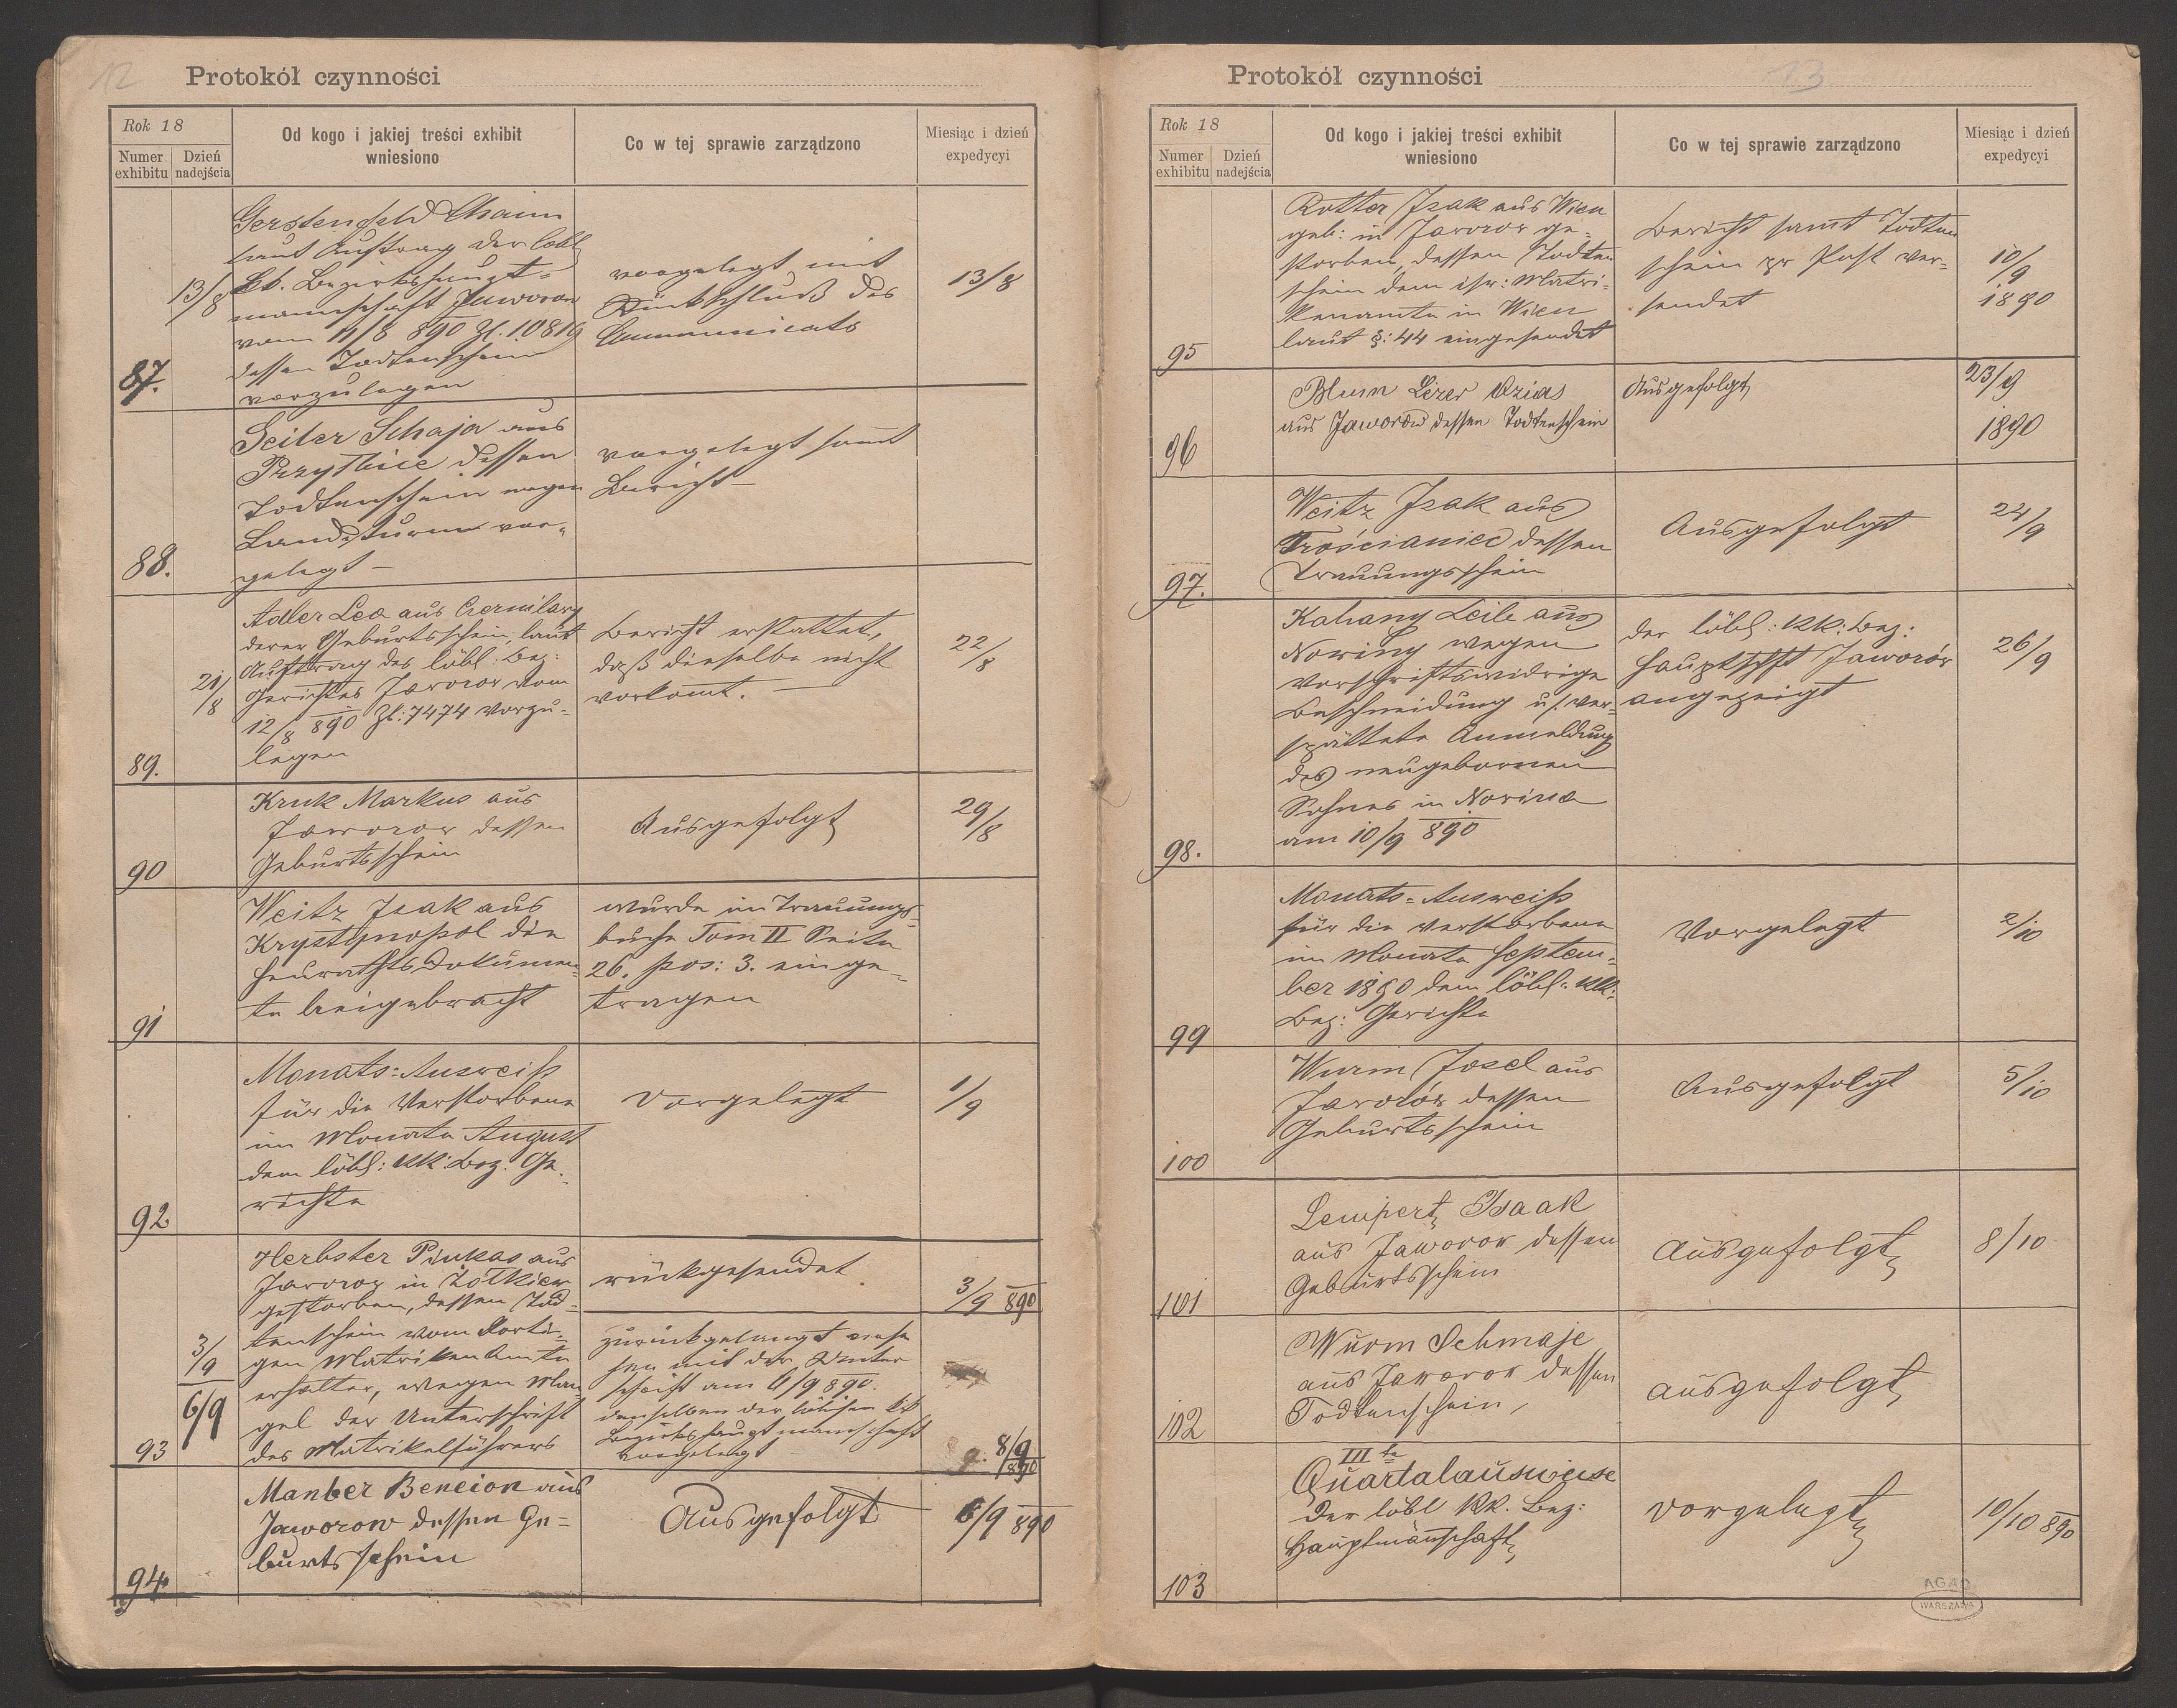 12
Protokół czynności
Rok 18
Numer exhibitu
Dzień nadejścia
Od kogo i jakiej treści exhibit wniesiono
Co w tej sprawie zarządzono
Miesiąc i dzień expedycyi
87.
13/8
Gerstenfeld Chaim
laut Auftrag der löbl
kk. Bezirkshaupt=
mannschaft Jaworow
vom 11/8 890 Zl. 10819
dessen Todtenschein
vorzulegen
vorgelegt mit
Rückschluß des
Communicats
13/8
88.
Seiler Schaja aus
Przyłbice dessen
Todtenschein wegen
Landsturm vor=
gelegt –
vorgelegt samt
Bericht –
89.
21/8
Adler Lea aus Czernilawy
deren Geburtsschein, laut
Auftrag des löbl: Bez:
Gerichtes Jaworow vom
12/8 890 Zl: 7474 vorzu=
legen
Bericht erstattet,
daß dieselbe nicht
vorkomt. –
22/8
90
Kruk Markus aus
Jaworow dessen
Geburtsschein
Ausgefolgt
29/8
91
Weitz Isak aus
Krystynopol die
Heuraths Dokumen=
te beigebracht
wurde im Trauungs=
buche Tom II Seite
26. pos: 3. einge=
tragen
92
Monats=Ausweiß
für die Verstorbene
im Monate August
dem löbl: KK: Bez: Ge=
richte
Vorgelegt
1/9
93
3/9
6/9
Herbster Pinkas aus
Jaworow in Żółkiew
gestorben, dessen Tod=
tenschein vom dorti=
gen Matriken Amte
erhalten, wegen Man=
gel der Unterschrift
des Matrikelführers
rückgesendet
3/9 890
zurückgelangt
mit der Unter
schrift am 6/9 890.
denselben der löblichen kk
Bezirkshauptmannschaft
vorgelegt
8/9 890
94.
Manber Bencion aus
Jaworow dessen Ge=
burtsschein
Ausgefolgt
6/9 890
13
Protokół czynności
Rok 18
Numer exhibitu
Dzień nadejścia
Od kogo i jakiej treści exhibit wniesiono
Co w tej sprawie zarządzono
Miesiąc i dzień expedycyi
95
Rotter Isak aus Wien
geb: in Jaworow ge=
storben, dessen Todten
schein dem isr: Matri=
kenamte in Wien
laut §: 44 eingesendet
Bericht samt Todten
schein pr Post ver=
sendet
10/9
1890
96
Blum Lezer Ozias
aus Jaworów dessen Todtenschein
Ausgefolgt
23/9
1890
97.
Weitz Isak aus
Trościaniec dessen
Trauungsschein
Ausgefolgt
24/9
98.
Kahany Leib aus
Nowiny wegen
vorschriftswidrige
Beschneidung u/ ver=
spättete Anmeldung
des neugebornen
Sohnes in Nowina
am 10/9 890
der löbl: KK: Bez:
Hauptschft Jaworów
angezeigt
26/9
99
Monats=Ausweiß
für die Verstorbene
im Monate Septem=
ber 1890 dem löbl: KK:
Bez: Gerichte
Vorgelegt
2/10
100
Wurm Josel aus
Jaworów dessen
Geburtsschein
Ausgefolgt
5/10
101
Lempert Isaak
aus Jaworow dessen
Geburtsschein
Ausgefolgt
8/10
102
Wurm Schmaje
aus Jaworow dessen
Todtenschein,
ausgefolgt
103
III te
Quartalausweise
der löbl KK. Bez:
Hauptmanschaft
vorgelegt
10/10 890
AGAD
WARSZAWA